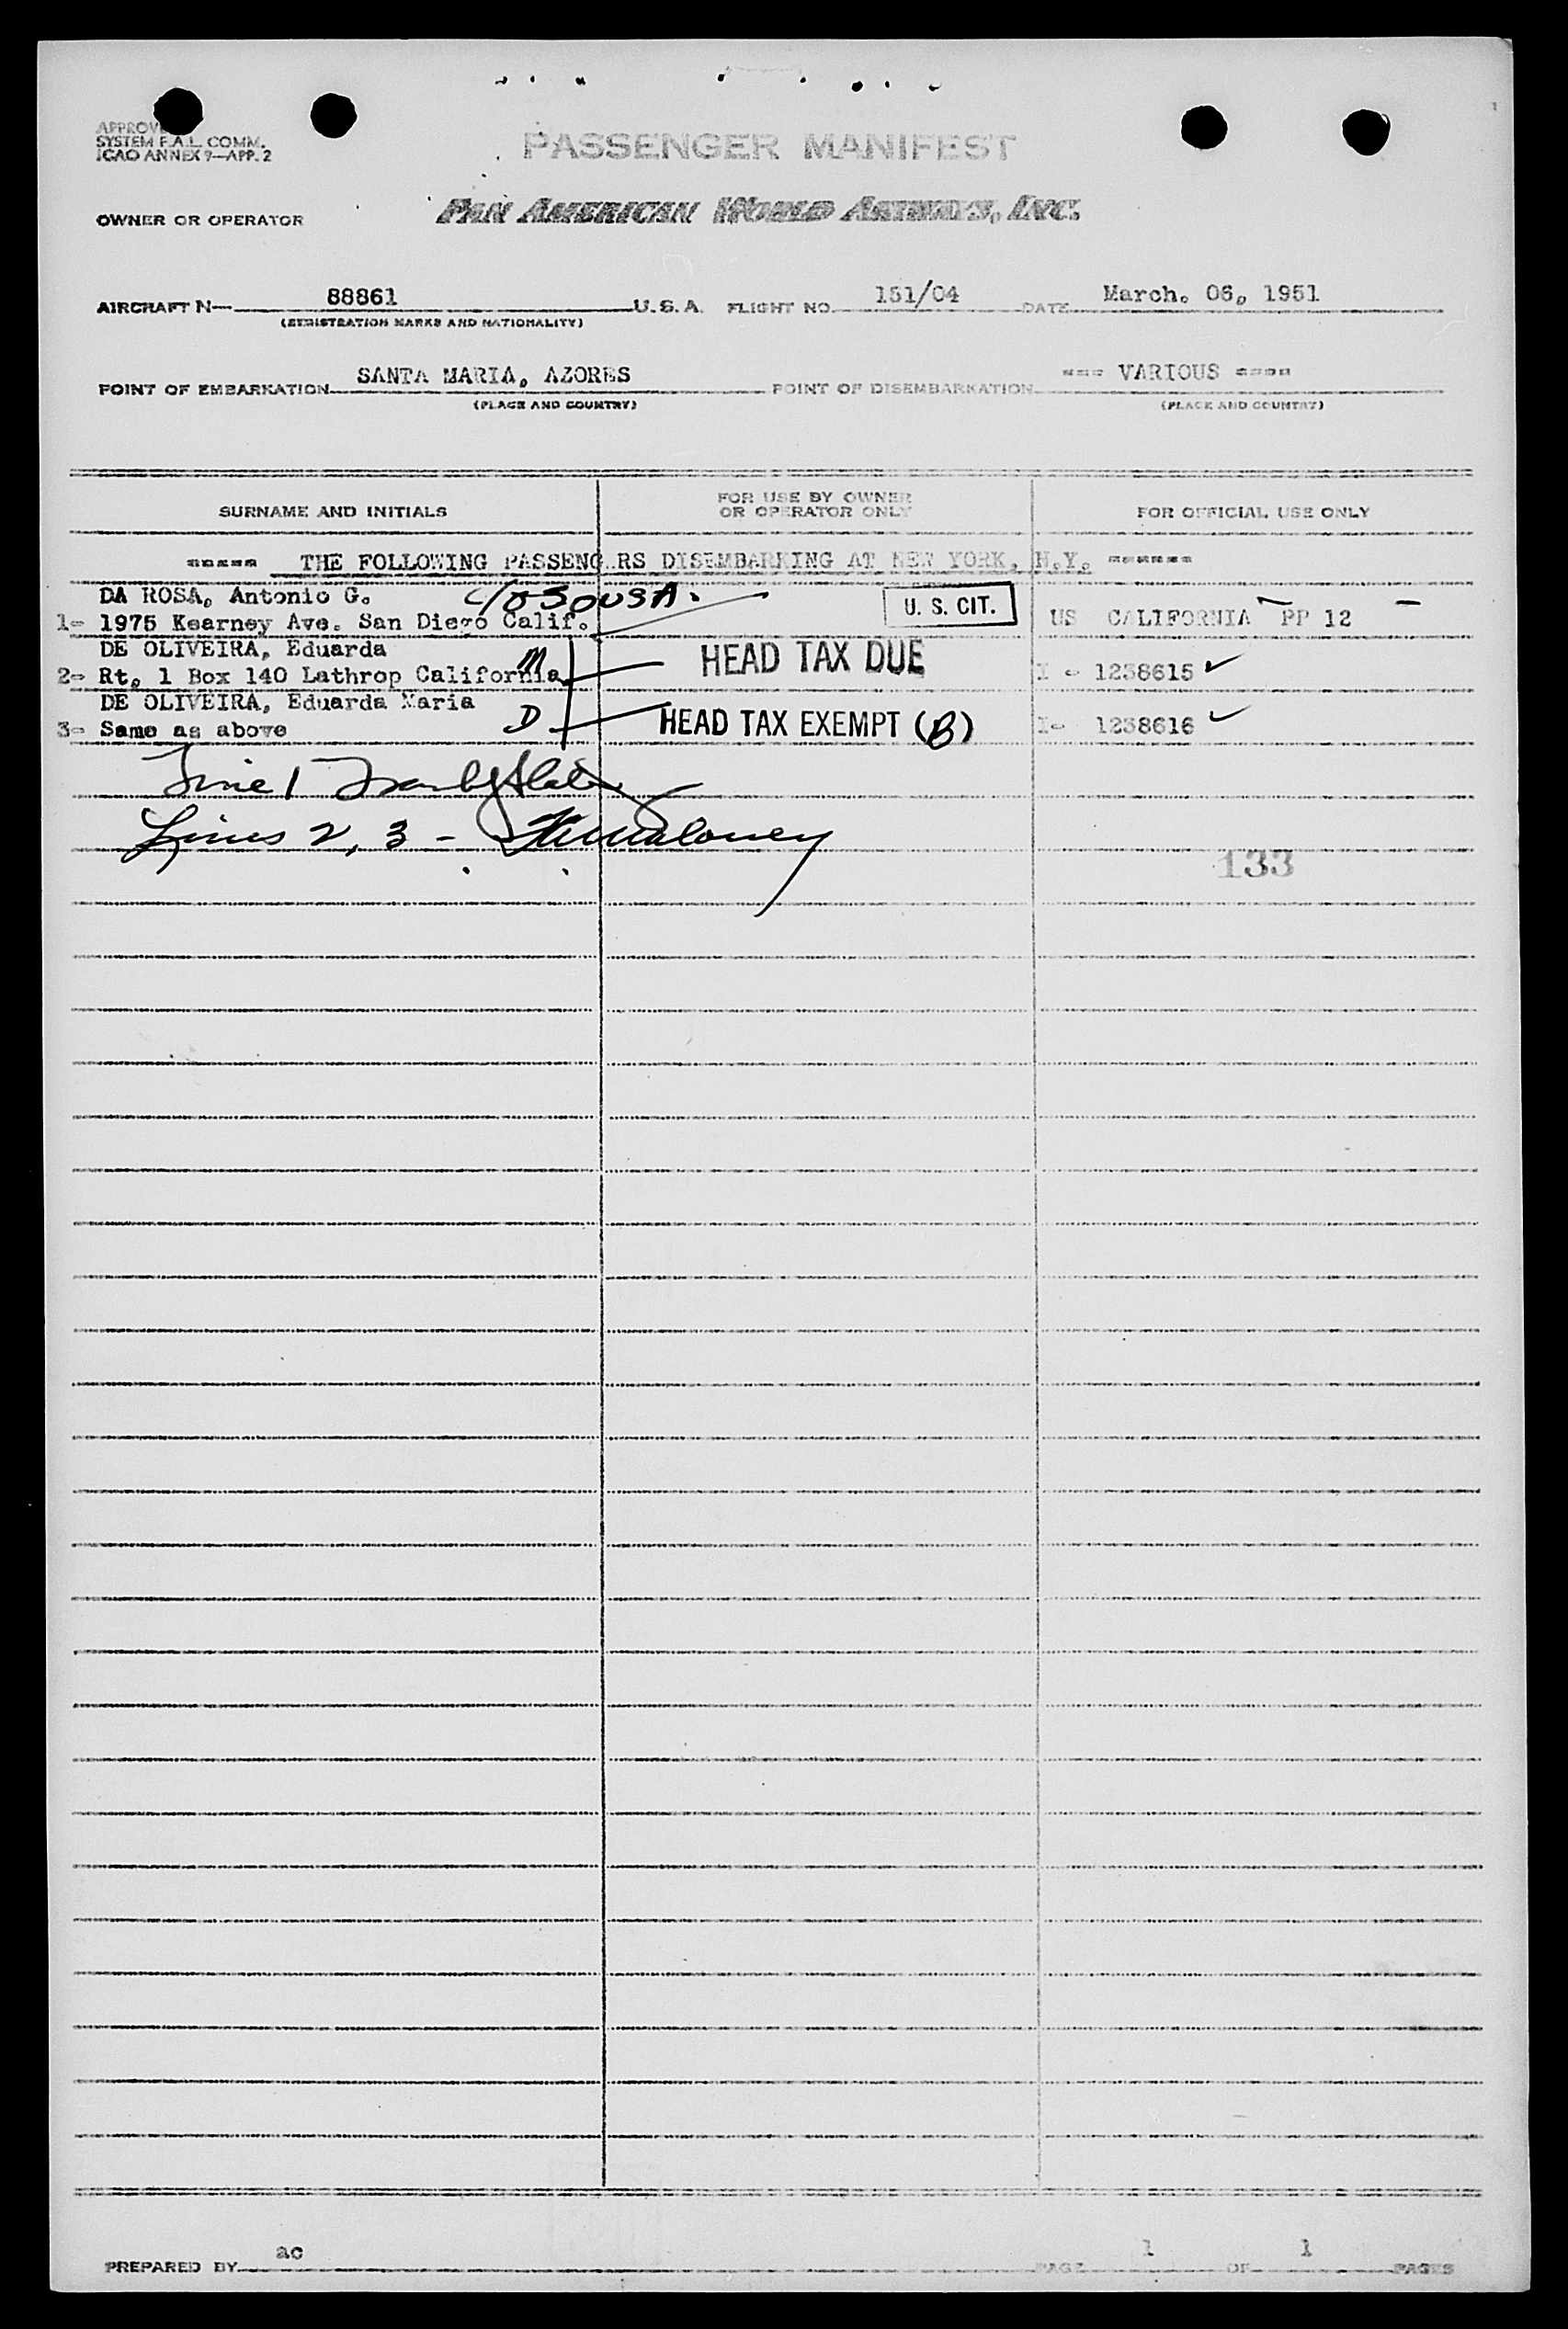 APPROV
SYSTEM F.A.L. COMM.
ICAO ANNEX 9—APP. 2
PASSENGER MANIFEST
OWNER OR OPERATOR PAN AMERICAN WORLD AIRWAYS, INC.
AIRCRAFT N— 88861 U.S.A. FLIGHT NO. 151/04 DATE March. 06, 1951
(REGISTRATION MARKS AND NATIONALITY)
POINT OF EMBARKATION SANTA MARIA, AZORES POINT OF DISEMBARKATION --- VARIOUS ----
(PLACE AND COUNTRY) (PLACE AND COUNTRY)
SURNAME AND INITIALS FOR USE BY OWNER OR OPERATOR ONLY FOR OFFICIAL USE ONLY
===== THE FOLLOWING PASSENG RS DISEMBARKING AT NEW YORK, N.Y. ======
DA ROSA, Antonio G. c/o SOUSA.
1- 1975 Kearney Ave. San Diego Calif. U. S. CIT. US CALIFORNIA PP 12
DE OLIVEIRA, Eduarda
2- Rt. 1 Box 140 Lathrop California M HEAD TAX DUE I - 1238615 ✓
DE OLIVEIRA, Eduarda Maria
3- Same as above D HEAD TAX EXEMPT (B) I- 1238616 ✓
Line 1
Lines 2, 3 - Maloney
133
PREPARED BY ac PAGE 1 OF 1 PAGES